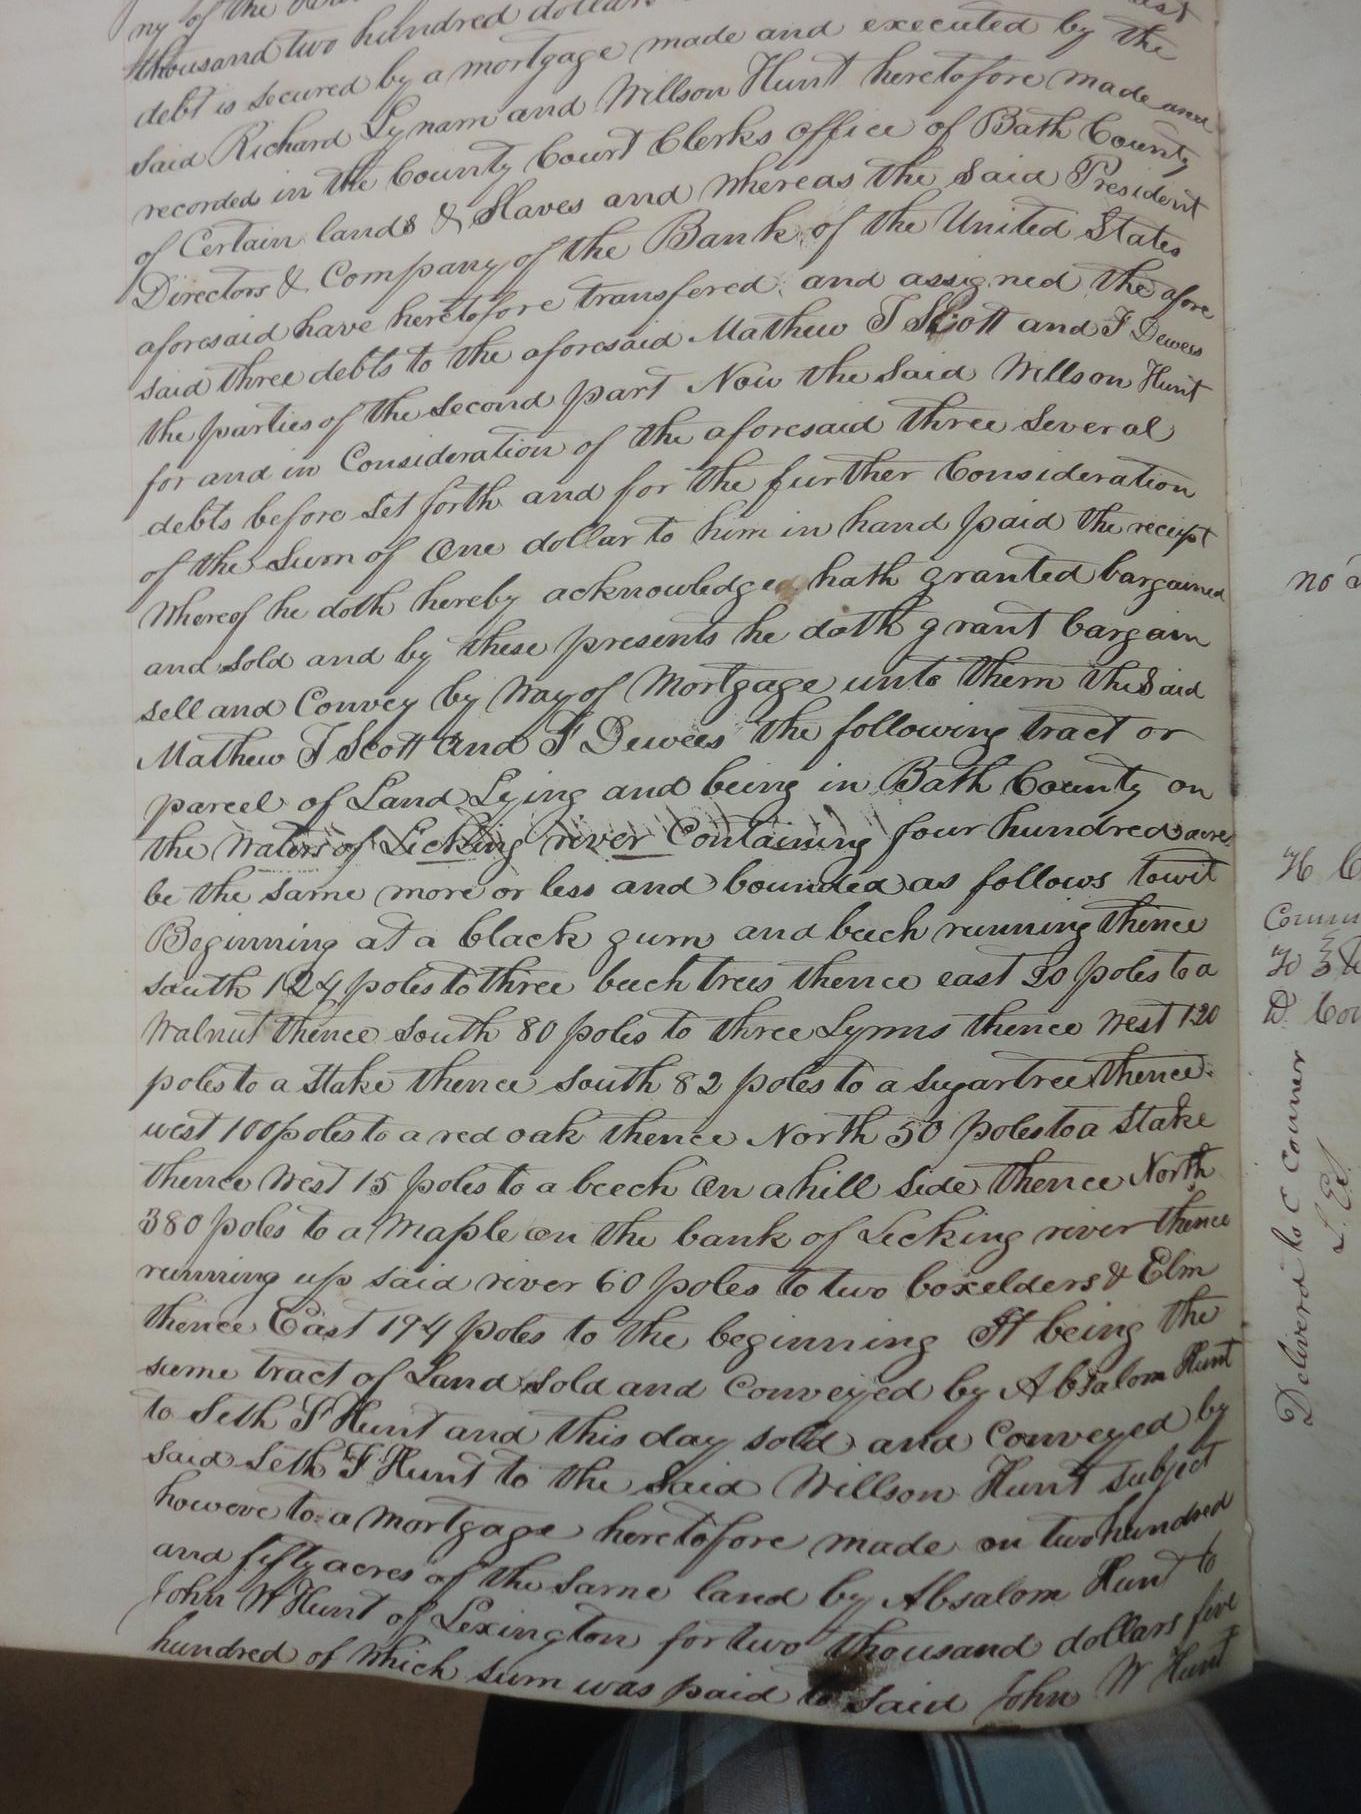 ny of the
thousand two hundred dollars
debt is secured by a mortgage made and executed by the
said Richard Lynam and Willson Hunt heretofore made and
recorded in the County Court Clerks office of Bath County
of Certain lands & Slaves and whereas the said President
Directors & Company of the Bank of the United States
aforesaid have heretofore transfered and assigned the afore
said three debts to the aforesaid Mathew T Scott and F Dewees
the parties of the second part Now the said Willson Hunt
for and in Consideration of the aforesaid three several
debts before set forth and for the further Consideration
of the sum of One dollar to him in hand paid the reciept
whereof he doth hereby acknowledge hath granted bargained
and sold and by these presents he doth grant bargain
sell and Convey by way of Mortgage unto them the said
Mathew T Scott and F Dewees the following tract or
parcel of Land Lying and being in Bath County on
the waters of Licking river Containing four hundred acres
be the same more or less and bounded as follows towit
Beginning at a black gum and beech running thence
south 124 poles to three beech trees thence east 20 poles to a
Walnut thence south 80 poles to three Lynns thence West 120
poles to a Stake thence south 82 poles to a sugartree thence
west 100 poles to a red oak thence North 50 poles to a Stake
thence West 15 poles to a beech on a hill side thence North
380 poles to a Maple on the bank of Licking river thence
running up said river 60 poles to two boxelders & Elm
thence East 194 poles to the beginning It being the
same tract of Land sold and conveyed by Absalom Hunt
to Seth F Hunt and this day sold and conveyed by
said Seth F Hunt to the said Willson Hunt subject
howove to a mortgage heretofore made on two hundred
and fifty acres of the same land by Absalom Hunt to
John W Hunt of Lexington for two thousand dollars five
hundred of which sum was paid to said John W Hunt
no
Deliverd to C Conner